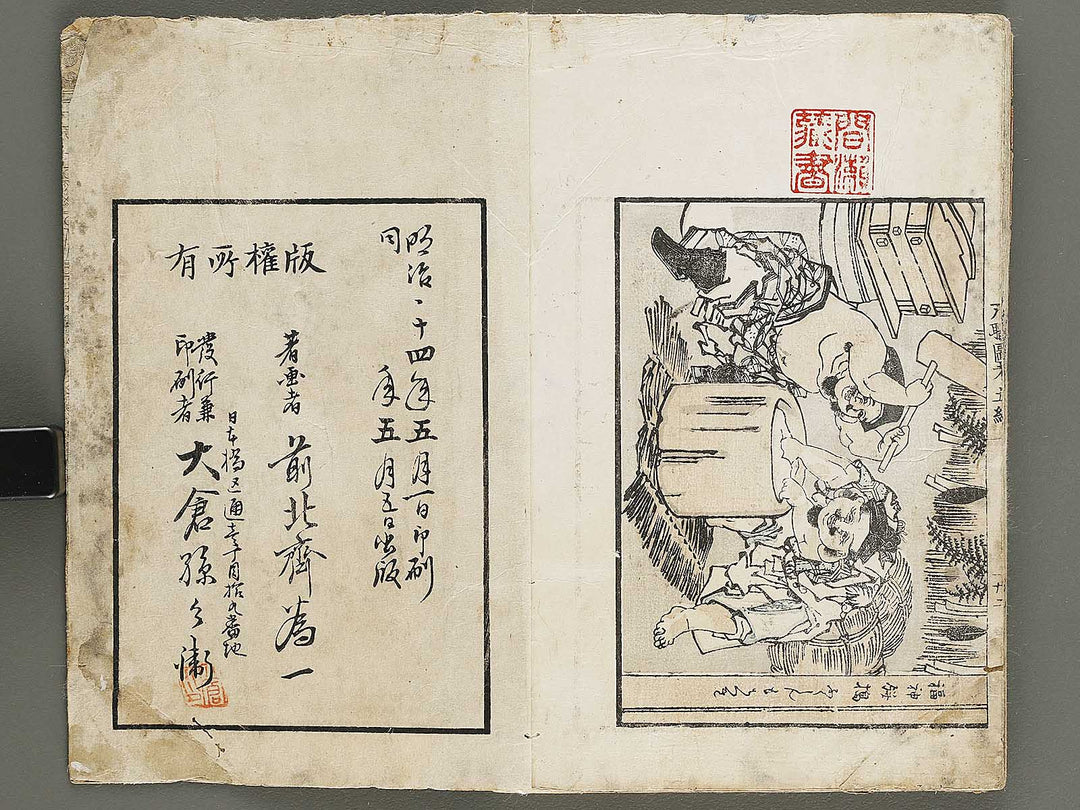 間瀬
藏書
職圖考五編
福神餅搗
明治二十四年五月一日印刷
同年五月五日出版
版權所有
著画者 前北齋為一
發行兼
印刷者
日本橋區通壱丁目拾九番地
大倉孫兵衛